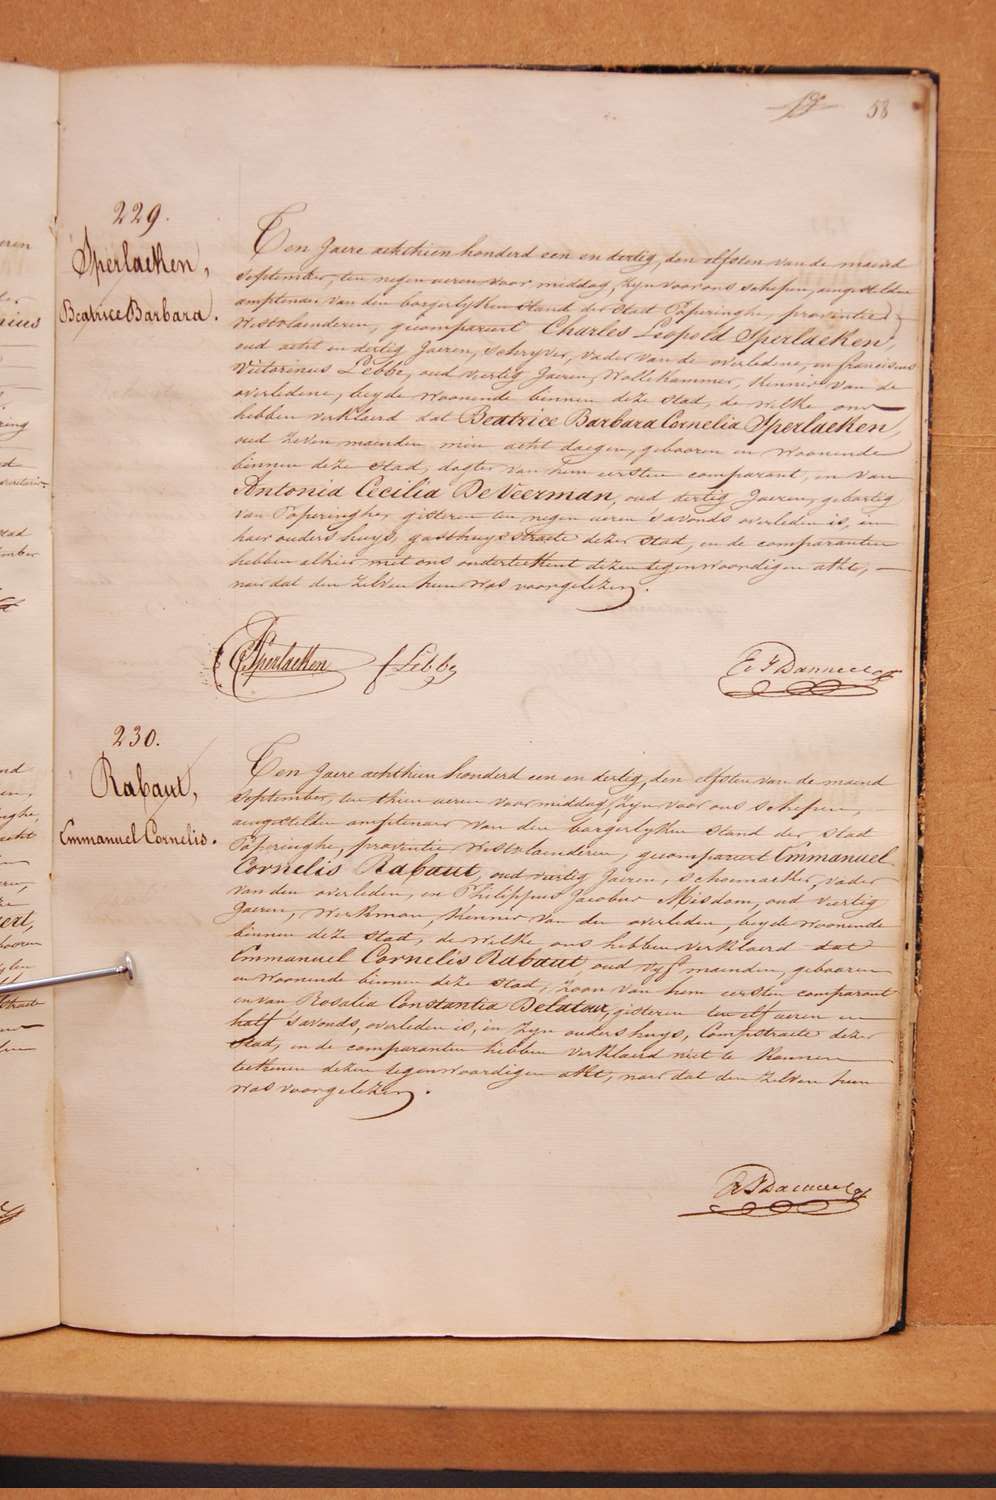 58
229.
Sperlaeken,
Beatrice Barbara.
Ten Jaere achthien honderd een en dertig, den elfsten van de maend
september, ten negen ueren voor middag, zyn voor ons schepen, aengestelden
amptenaer van den borgerlyken stand der stad Poperinghe, provintie
Westvlaenderen, gecompareert Charles Leopold Sperlaeken,
oud acht en dertig Jaeren, schryver, vader van de overledene, en franciscus
Victorinus Lebbe, oud veertig Jaeren, Wollekammer, kennis van de
overledene, beyde woonende binnen deze stad, de welke ons
hebben verklaerd dat Beatrice Barbara Cornelia Sperlaeken,
oud zeven maenden, min acht daegen, gebooren en woonende
binnen deze stad, dogter van hem eersten comparant, en van
Antonia Cecilia De Veerman, oud dertig Jaeren, geboortig
van Poperinghe, gisteren ten negen ueren 's avonds overleden is, in
haer ouders huys, gasthuysstraete dezer stad, en de comparanten
hebben alhier met ons onderteekent dezen tegenwoordigen akte,
naer dat den zelven hun was voorgelezen.
Sperlaeken
f Lebbe
230.
Rabaut,
Emmanuel Cornelis.
Ten Jaere achthien honderd een en dertig, den elfsten van de maend
september, ten thien ueren voor middag, zyn voor ons schepen,
aengestelden amptenaer van den borgerlyken stand der stad
Poperinghe, provintie Westvlaenderen, gecompareert Emmanuel
Cornelis Rabaut, oud veertig Jaeren, schoemaeker, vader
van den overleden, en Philippus Jacobus Misdom, oud veertig
Jaeren, Werkman, kennis van den overleden, beyde woonende
binnen deze stad, de welke ons hebben verklaerd dat
Emmanuel Cornelis Rabaut, oud vyf maenden, gebooren
en woonende binnen deze stad, zoon van hem eersten comparant
en van Rosalia Constantia Delatour, gisteren ten elf ueren en
half 's avonds, overleden is, in zyn ouders huys, Compstraete dezer
stad, en de comparanten hebben verklaerd niet te konnen
teekenen dezen tegenwoordigen akt, naer dat den zelven hun
was voorgelezen.